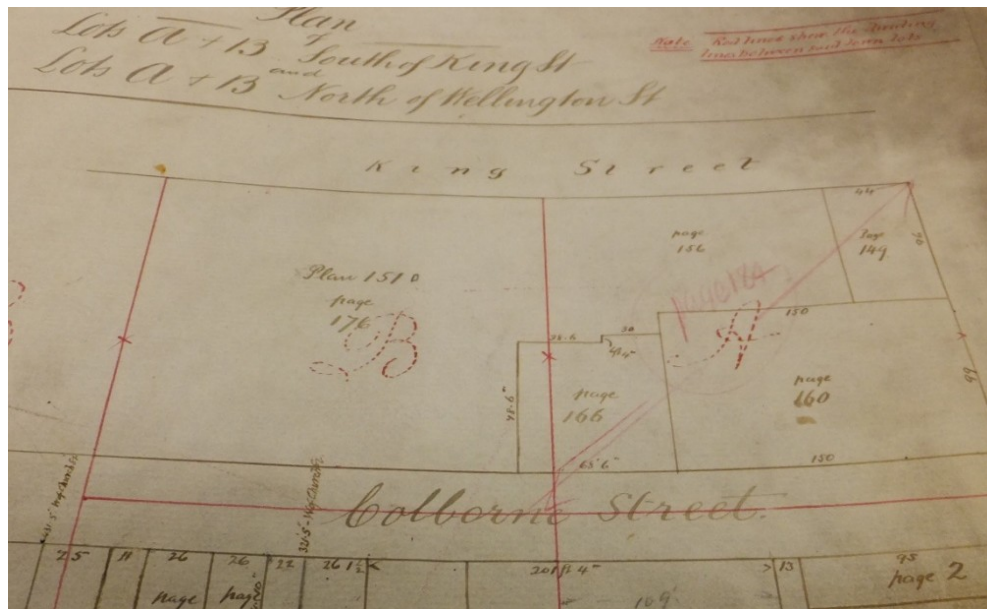 Plan
of
Lots A + B South of King St
and
Lots A + B North of Wellington St
Note Red lines show the dividing
lines between said town lots
King Street
44
page
156
Page
149
90
Plan 151 D
page
176
B
page 184
A
150
38.6
30
48-6"
page
166
page
160
99
63'6"
150
Colborne Street.
25
11
26
26
22
26 1/2
201 ft 4"
13
95
page
page
109
page 2